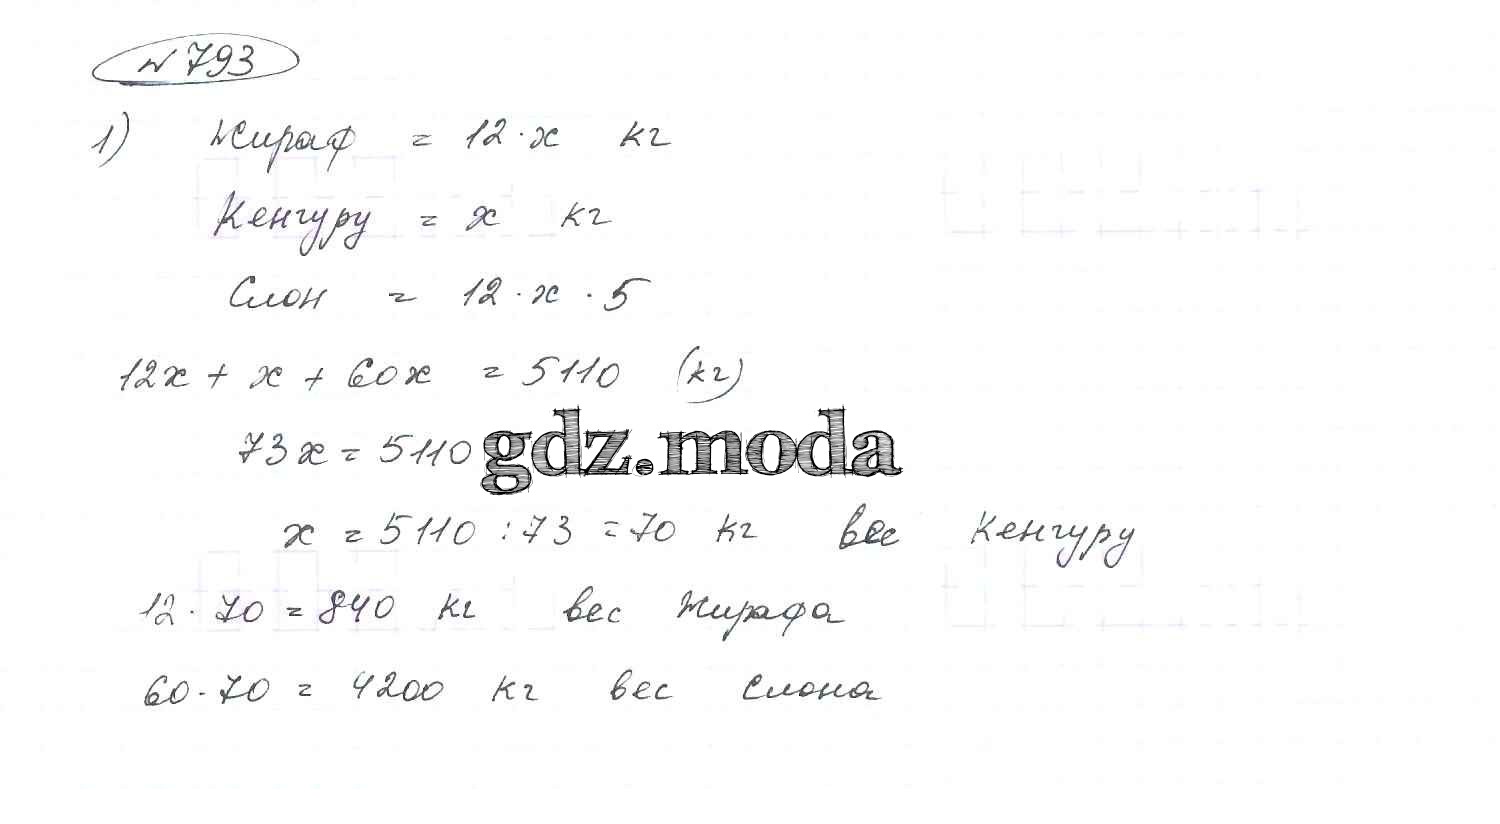 № 793
1) Жираф = 12 · x кг
Кенгуру = x кг
Слон = 12 · x · 5
12x + x + 60x = 5110 (кг)
73x = 5110
gdz.moda
x = 5110 : 73 = 70 кг вес кенгуру
12 · 70 = 840 кг вес жирафа
60 · 70 = 4200 кг вес слона